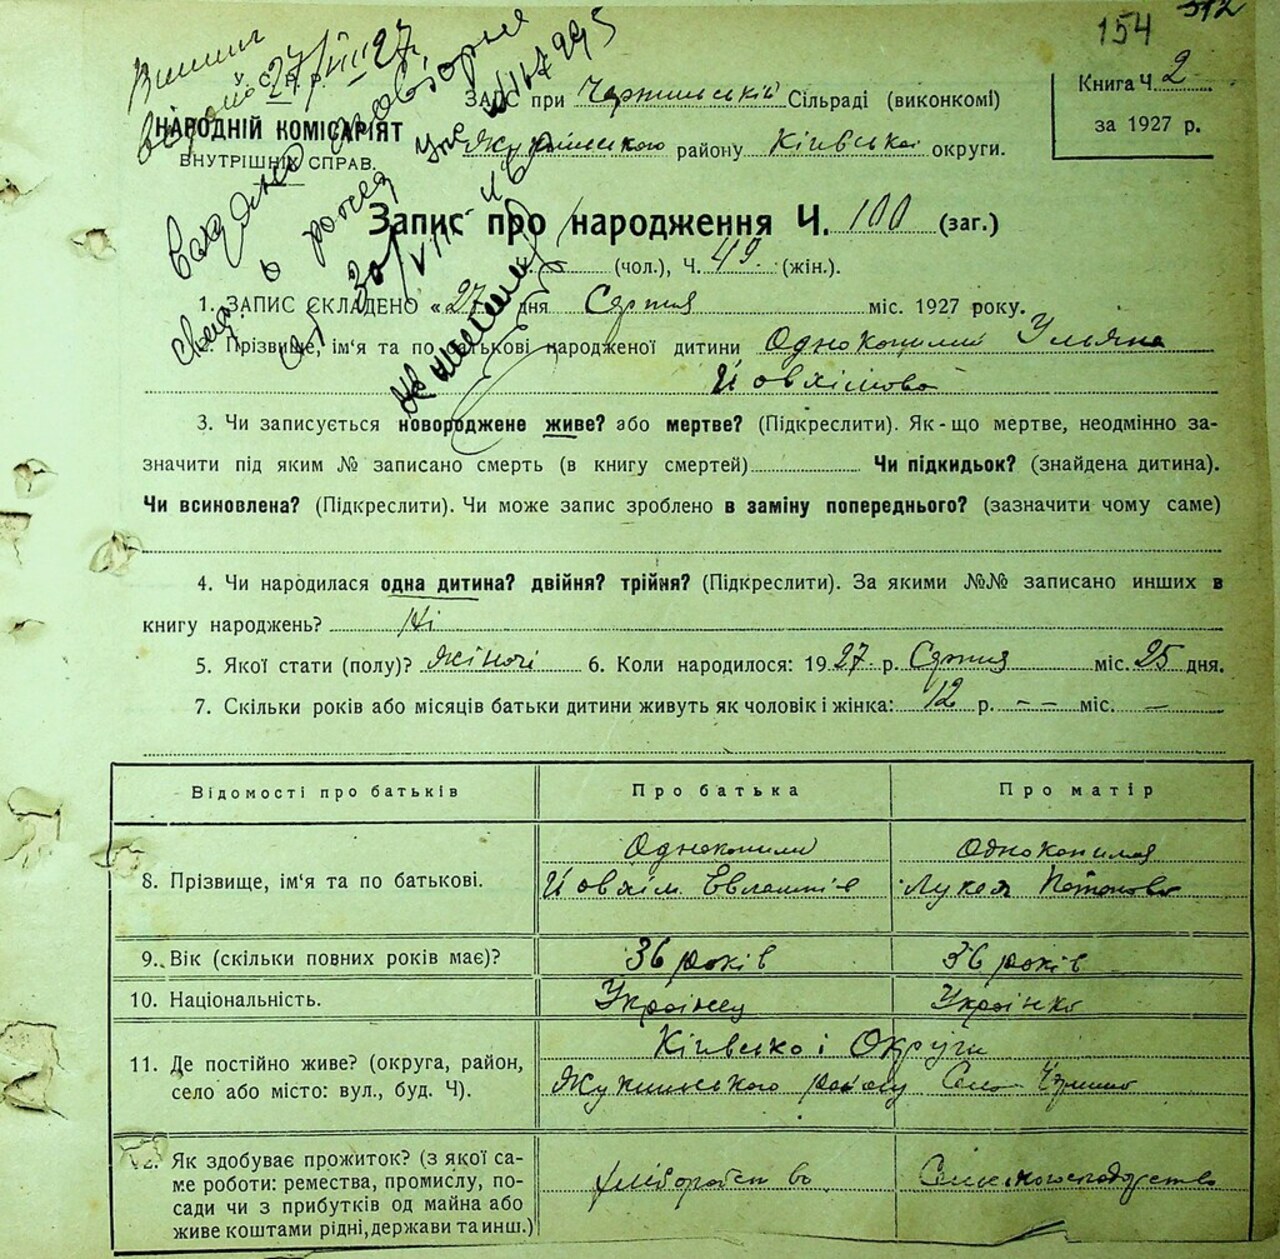 154
312
Виписи
видано 27/VIII 27 р.
У. С. Р. Р.
НАРОДНІЙ КОМІСАРІЯТ
ВНУТРІШНІХ СПРАВ.
Видано повторне
свід. о рожд
30/VII
ЗАГС при Чернинській Сільраді (виконкомі)
району Київської округи.
Книга Ч. 2
за 1927 р.
Запис про народження Ч. 100 (заг.)
— (чол.), Ч. 49 (жін.).
1. ЗАПИС СКЛАДЕНО «27» дня Серпня міс. 1927 року.
2. Прізвище, ім'я та по батькові народженої дитини Однокопилий Ульяна
Йовхімова
3. Чи записується новороджене живе? або мертве? (Підкреслити). Як-що мертве, неодмінно за-
значити під яким № записано смерть (в книгу смертей) Чи підкидьок? (знайдена дитина).
Чи всиновлена? (Підкреслити). Чи може запис зроблено в заміну попереднього? (зазначити чому саме)
4. Чи народилася одна дитина? двійня? трійня? (Підкреслити). За якими №№ записано инших в
книгу народжень? Ні
5. Якої стати (полу)? жіночі 6. Коли народилося: 1927 р. Серпня міс. 25 дня.
7. Скільки років або місяців батьки дитини живуть як чоловік і жінка: 12 р. – – міс. —
Відомості про батьків Про батька Про матір
8. Прізвище, ім'я та по батькові.
Однокопили
Йовхім
Однокопилая
Лукея Потапова
9. Вік (скільки повних років має)? 36 років 36 років
10. Національність. Українец Українка
11. Де постійно живе? (округа, район,
село або місто: вул., буд. Ч).
Київської Округи
району Село
12. Як здобуває прожиток? (з якої са-
ме роботи: ремества, промислу, по-
сади чи з прибутків од майна або
живе коштами рідні, держави та инш.)
хліборобство